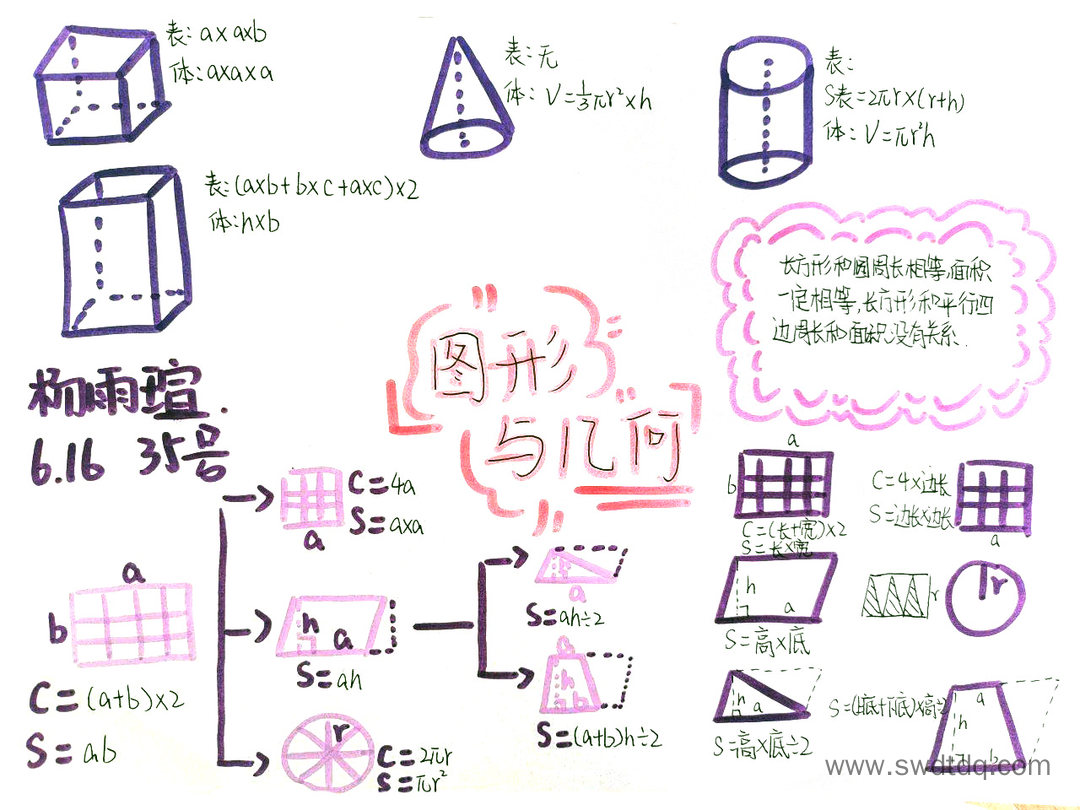 表: a×a×b
体: a×a×a
表: 无
体: V=⅓πr²×h
表:
S表=2πr×(r+h)
体: V=πr²h
表:(a×b+b×c+a×c)×2
体:h×b
长方形和圆周长相等,面积
一定相等,长方形和平行四
边周长和面积没有关系.
图形
与几何
杨雨瑄.
6.16 35号
C=4a
S=a×a
a
a
b
C=(a+b)×2
S=ab
h
a
S=ah
r
C=2πr
S=πr²
a
S=ah÷2
a
h
b
S=(a+b)h÷2
a
b
C=(长+宽)×2
S=长×宽
C=4×边长
S=边长×边长
a
h
a
S=高×底
r
r
h
a
S=高×底÷2
S=(上底+下底)×高÷2
a
h
www.swdtdq.com